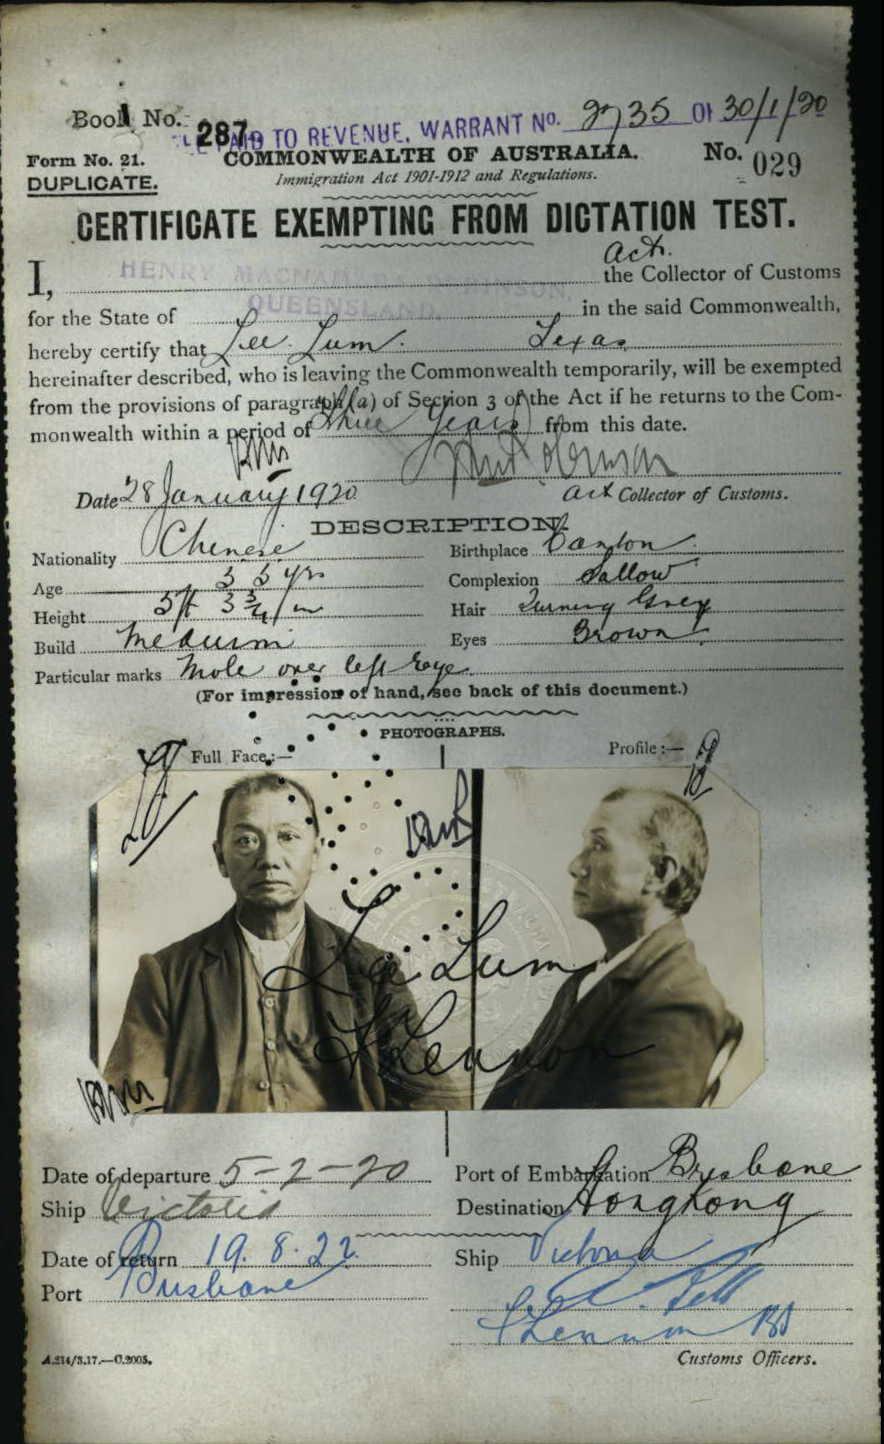 Book No. 287.
PAID TO REVENUE, WARRANT No. 2735 OF 30/1/20
Form No. 21.
COMMONWEALTH OF AUSTRALIA.
No. 029
DUPLICATE.
Immigration Act 1901-1912 and Regulations.
CERTIFICATE EXEMPTING FROM DICTATION TEST.
Act.
I, HENRY the Collector of Customs
QUEENSLAND.
for the State of in the said Commonwealth,
hereby certify that Lee Lum. Texas
hereinafter described, who is leaving the Commonwealth temporarily, will be exempted
from the provisions of paragraph (a) of Section 3 of the Act if he returns to the Com-
monwealth within a period of Three Years from this date.
Date 28 January 1920
Act Collector of Customs.
DESCRIPTION.
Nationality Chinese Birthplace Canton
Age 55 yrs Complexion Sallow
Height 5 ft 3 3/4 in Hair Turning Grey
Build Medium Eyes Brown
Particular marks Mole over left eye.
(For impression of hand, see back of this document.)
PHOTOGRAPHS.
Full Face:— Profile:—
Lee Lum
Lennon
Date of departure 5-2-20 Port of Embarkation Brisbane
Ship Victoria Destination Hongkong
Date of return 19.8.22. Ship Victoria
Port Brisbane
Lennon
A.214/3.17.—C.2005.
Customs Officers.